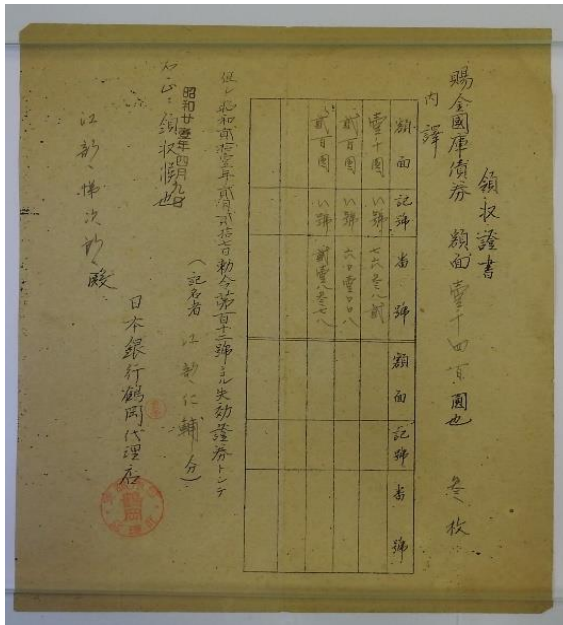 領収證書
賜金國庫債券 額面壹千四百圓也 叁枚
内譯
額面 記號 番號 額面 記號 番號
壹千圓 い號 七六叁八貳
貳百圓 い號 六〇壹〇〇八
貳百圓 い號
但シ昭和貳拾壹年貳月貳拾七日勅令第百十二號ニヨル失効證券トシテ
(記名者 江部仁輔分)
右正ニ領収候也
昭和廿壹年四月九日
日本銀行鶴岡代理店
江部悌次郎殿
鶴岡